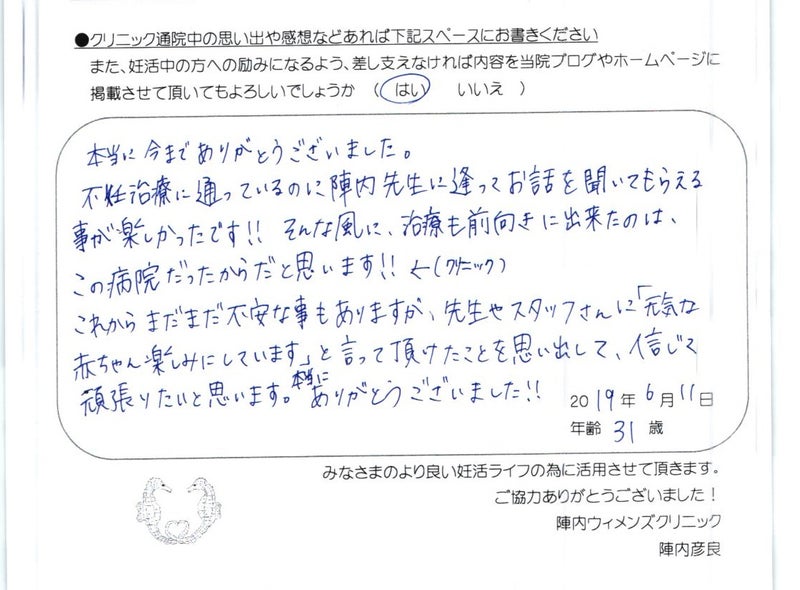 ●クリニック通院中の思い出や感想などあれば下記スペースにお書きください
また、妊活中の方への励みになるよう、差し支えなければ内容を当院ブログやホームページに
掲載させて頂いてもよろしいでしょうか （ はい いいえ ）
本当に今までありがとうございました。
不妊治療に通っているのに陣内先生に逢ってお話を聞いてもらえる
事が楽しかったです!! そんな風に、治療も前向きに出来たのは、
この病院だったからだと思います!! ←(クリニック)
これからまだまだ不安な事もありますが、先生やスタッフさんに「元気な
赤ちゃん楽しみにしています」と言って頂けたことを思い出して、信じて
頑張りたいと思います。本当にありがとうございました!!
2019年6月11日
年齢 31 歳
みなさまのより良い妊活ライフの為に活用させて頂きます。
ご協力ありがとうございました！
陣内ウィメンズクリニック
陣内彦良